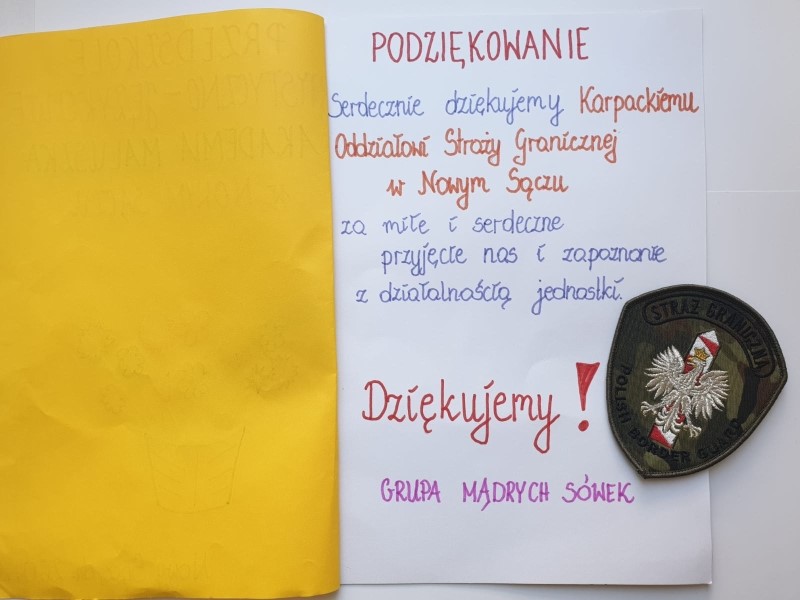 PRZEDSZKOLE
AKADEMIA MALUSZKA
PODZIĘKOWANIE
Serdecznie dziękujemy Karpackiemu
Oddziałowi Straży Granicznej
w Nowym Sączu
za miłe i serdeczne
przyjęcie nas i zapoznanie
z działalnością jednostki.
Dziękujemy!
GRUPA MĄDRYCH SÓWEK
STRAŻ GRANICZNA
POLISH BORDER GUARD